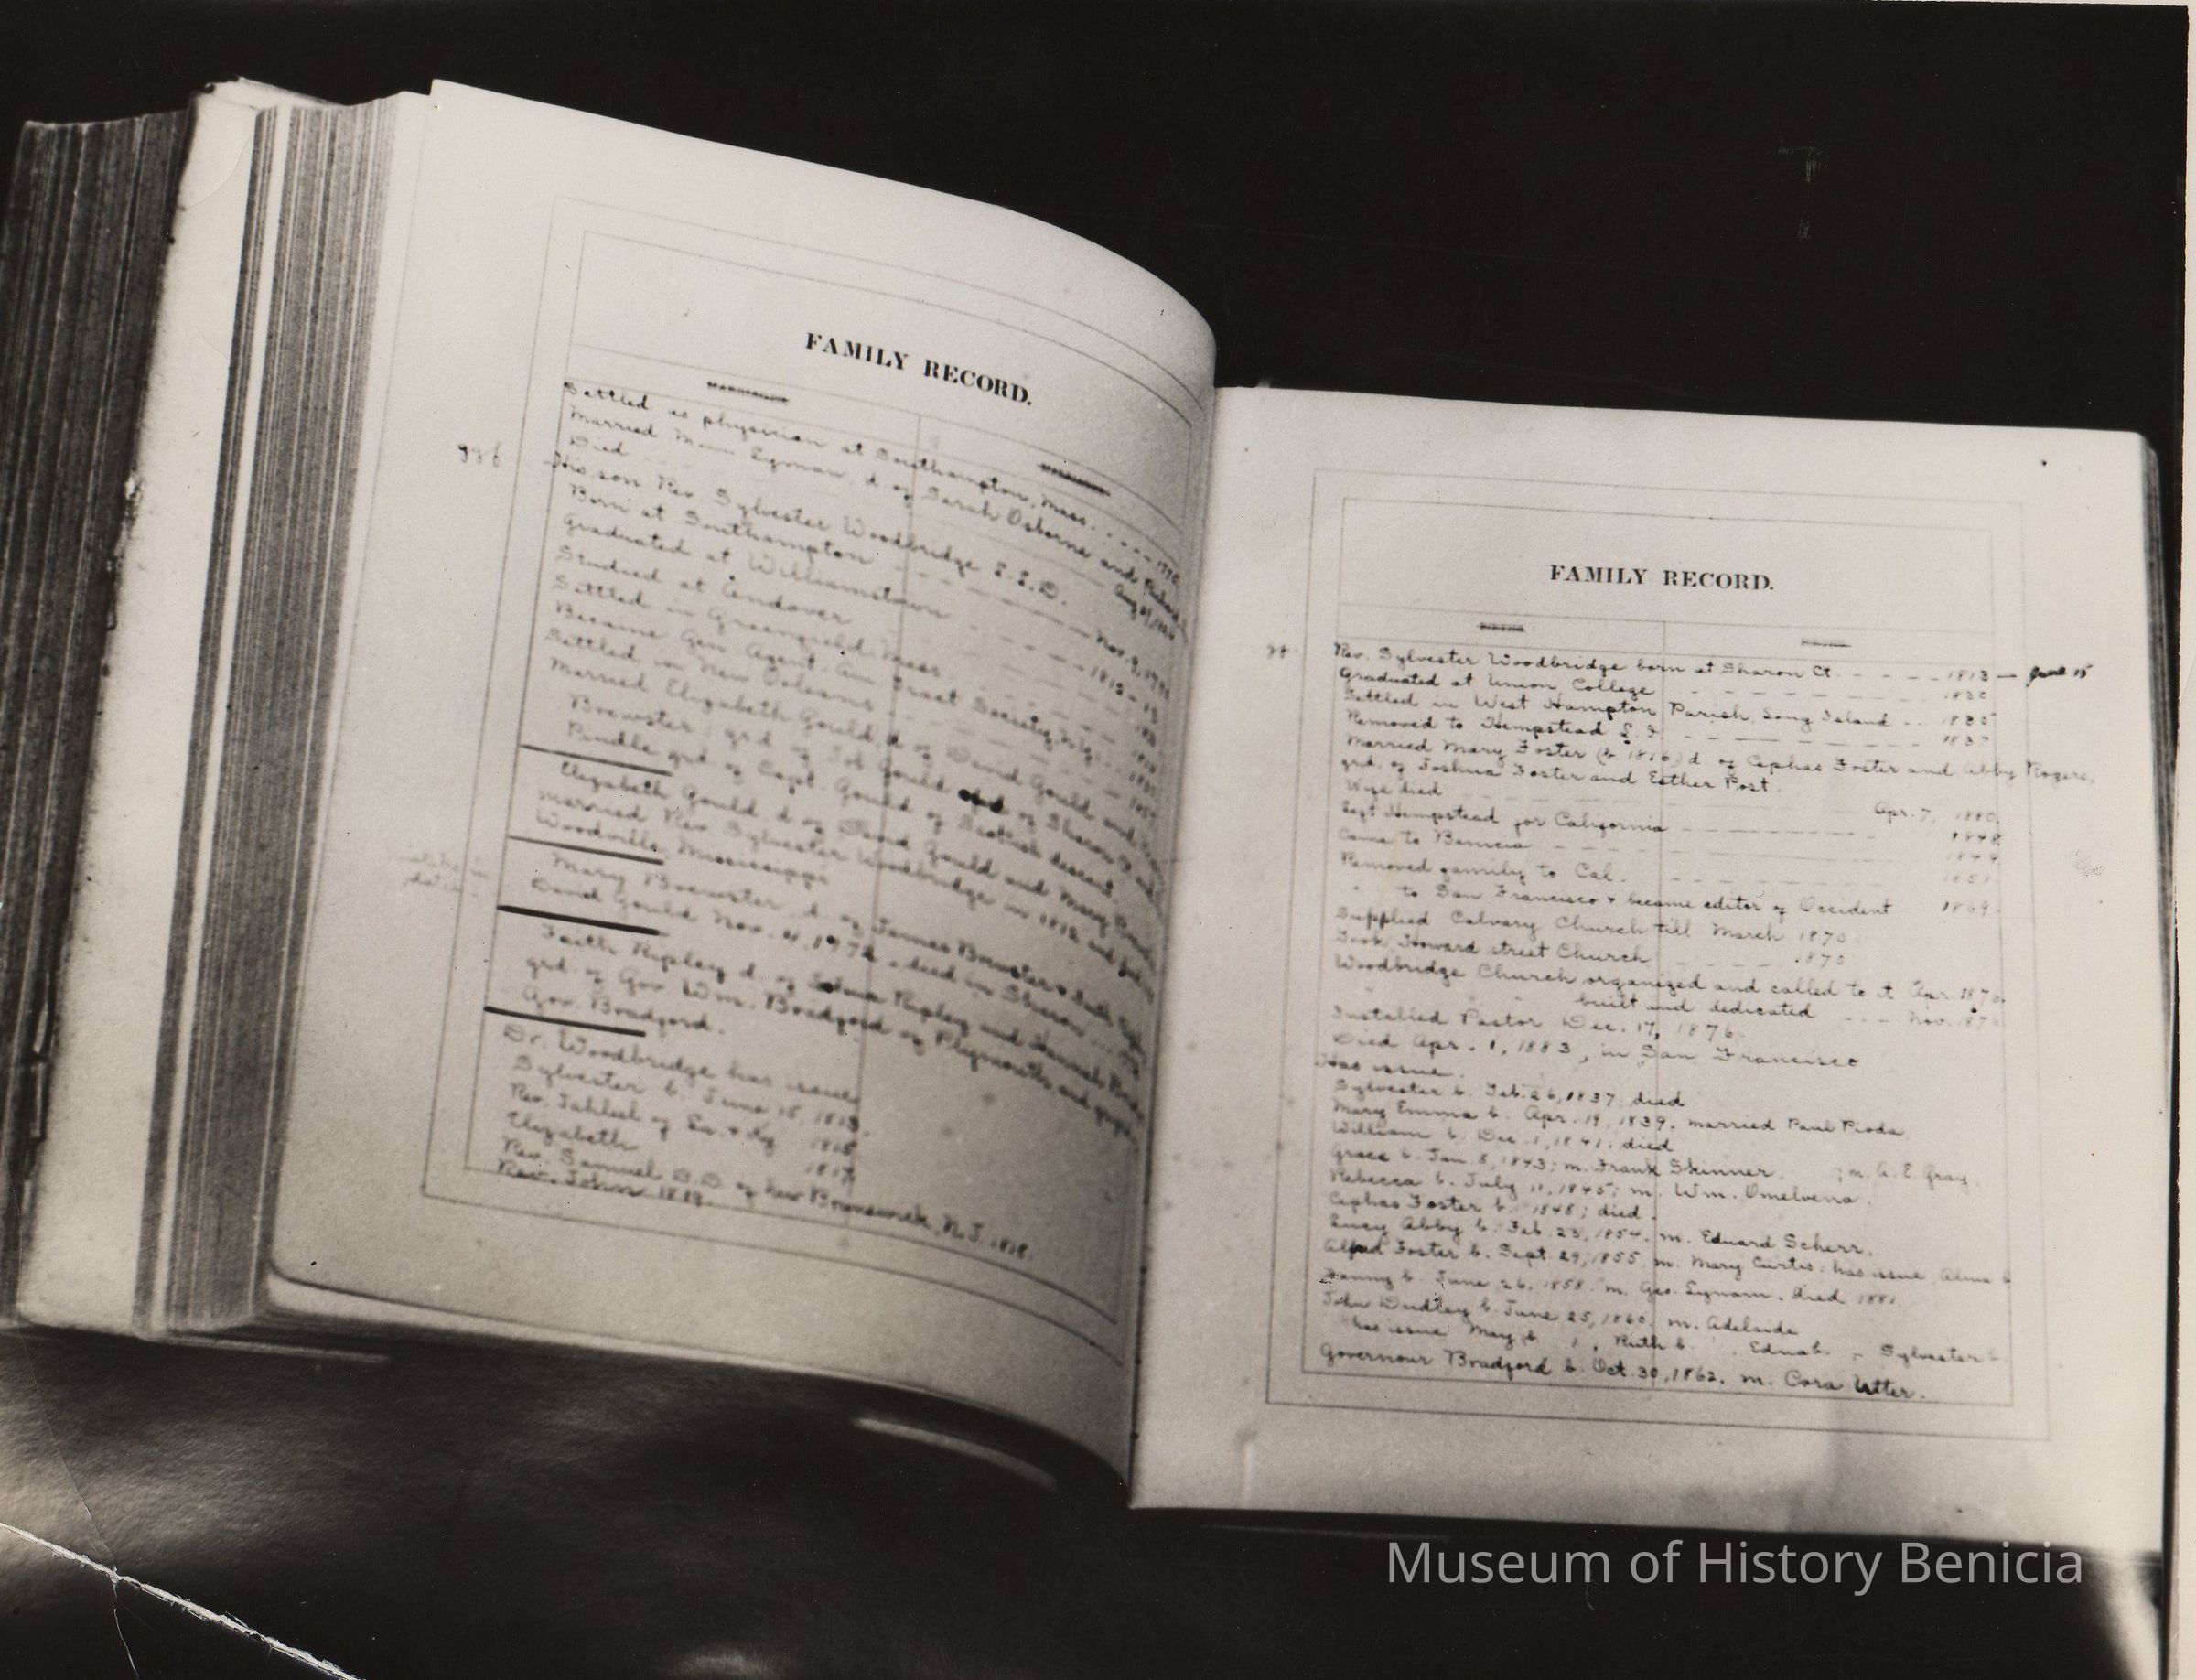 FAMILY RECORD.
Settled as physician at Southampton, Mass.
Married Lyman d. of Sarah Osborne and
Died
His son Rev. Sylvester Woodbridge
Born at Southampton
Graduated at Williamstown
Studied at Andover
Settled in Greenfield, Mass
Became Gen Agent. Am Tract Society
Settled in New Orleans
Married Elizabeth Gould, d. of David Gould and
Brewster; grd of Job Gould of Sharon
grd. of Capt. Gould of Scottish descent.
Elizabeth Gould d. of David Gould and Mary
Married Rev. Sylvester Woodbridge in 1812
Woodville, Mississippi
Mary Brewster d. of James Brewster & Faith
David Gould Nov. died in Sharon
Faith Ripley d. of Ripley and Hannah
grd. of Gov Wm. Bradford of Plymouth, and
Gov. Bradford.
Dr. Woodbridge has issue
Sylvester b. June 15, 1813.
Rev. Jahleel of 1815
Elizabeth 1817
Rev. Samuel D.D. of New Brunswick, N.J.
Rev. John 1819.
FAMILY RECORD.
Rev. Sylvester Woodbridge born at Sharon Ct. 1813 — June 15
Graduated at Union College 1830
Settled in West Hampton Parish, Long Island
Removed to Hempstead L. I. 1837
Married Mary Foster (b 1816) d of Cephas Foster and Abby Rogers,
grd. of Joshua Foster and Esther Post.
Wife died Apr. 7, 1880.
Left Hempstead for California 1848
Came to Benicia 1849
Removed family to Cal. 1851
" to San Francisco & became editor of Occident 1869
Supplied Calvary Church till March 1870
Took Howard street Church 1870
Woodbridge Church organized and called to it Apr.
" " built and dedicated Nov.
Installed Pastor Dec. 17, 1876.
Died Apr. 1, 1883, in San Francisco
Has issue.
Sylvester b. Feb. 26, 1837; died
Mary Emma b. Apr. 19, 1839. married Paul Pioda
William b. Dec. 1, 1841; died
Grace b. Jan. 8, 1843; m. Frank Skinner. ; m. A. E. Gray.
Rebecca b. July 11, 1845; m. Wm. Omelvena.
Cephas Foster b. 1848; died.
Lucy Abby b. Feb. 23, 1854. m. Eduard Scherr.
Alfred Foster b. Sept. 29, 1855 m. Mary Curtis: has issue Alma b
Fanny b. June 26, 1858 m. Geo. Lynam. Died 1881.
John Dudley b. June 25, 1860. m. Adelaide
has issue May b. , Ruth b. , Edna b. Sylvester b.
Governour Bradford b. Oct. 30, 1862. m. Cora Utter.
Museum of History Benicia